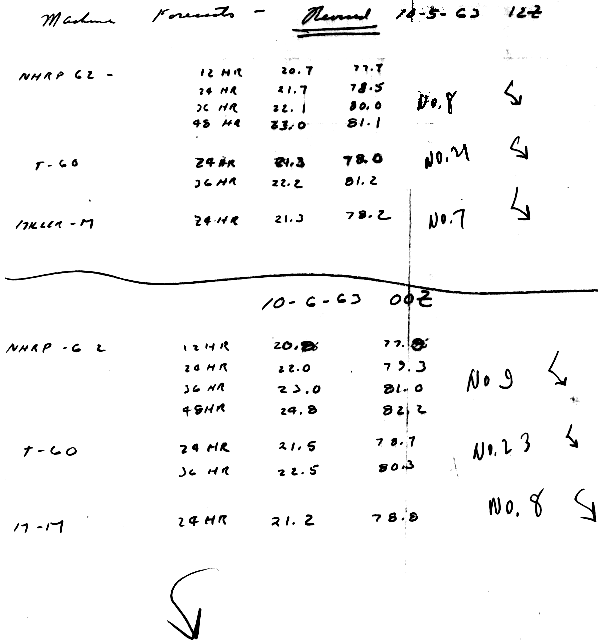 Machine Forecasts - Revised 10-5-63 12Z
NHRP 62 - 12 HR 20.7 77.7
24 HR 21.7 78.5
36 HR 22.1 80.0 No. 8
48 HR 23.0 81.1
T-60 24 HR 21.3 78.0 No. 21
36 HR 22.2 81.2
MILLER-M 24 HR 21.3 78.2 No. 7
10-6-63 00Z
NHRP-62 12 HR 20. 77.
24 HR 22.0 79.3
36 HR 23.0 81.0 No 9
48 HR 24.8 82.2
T-60 24 HR 21.5 78.7 No. 23
36 HR 22.5 80.3
M-M 24 HR 21.2 78.8 No. 8